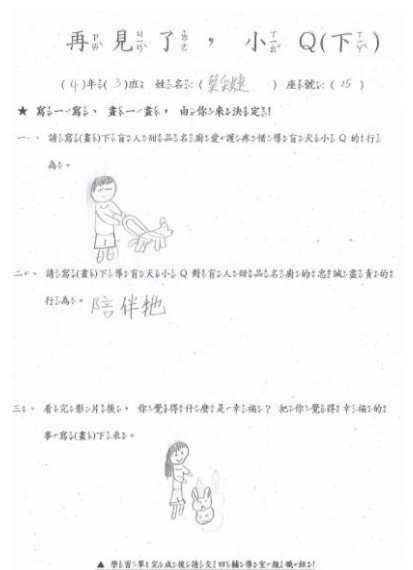 再見了，小Q(下)
(4)年(3)班 姓名：( ) 座號：(15)
★ 寫一寫、畫一畫，由你來決定!
一、 請寫(畫)下盲人甜品名廚愛護疼惜導盲犬小Q的行
為。
二、 請寫(畫)下導盲犬小Q對盲人甜品名廚的忠誠盡責的
行為。陪伴牠
三、 看完影片後，你覺得什麼是幸福? 把你覺得幸福的
事寫(畫)下來。
▲ 學習單完成後請交回輔導室親職組!